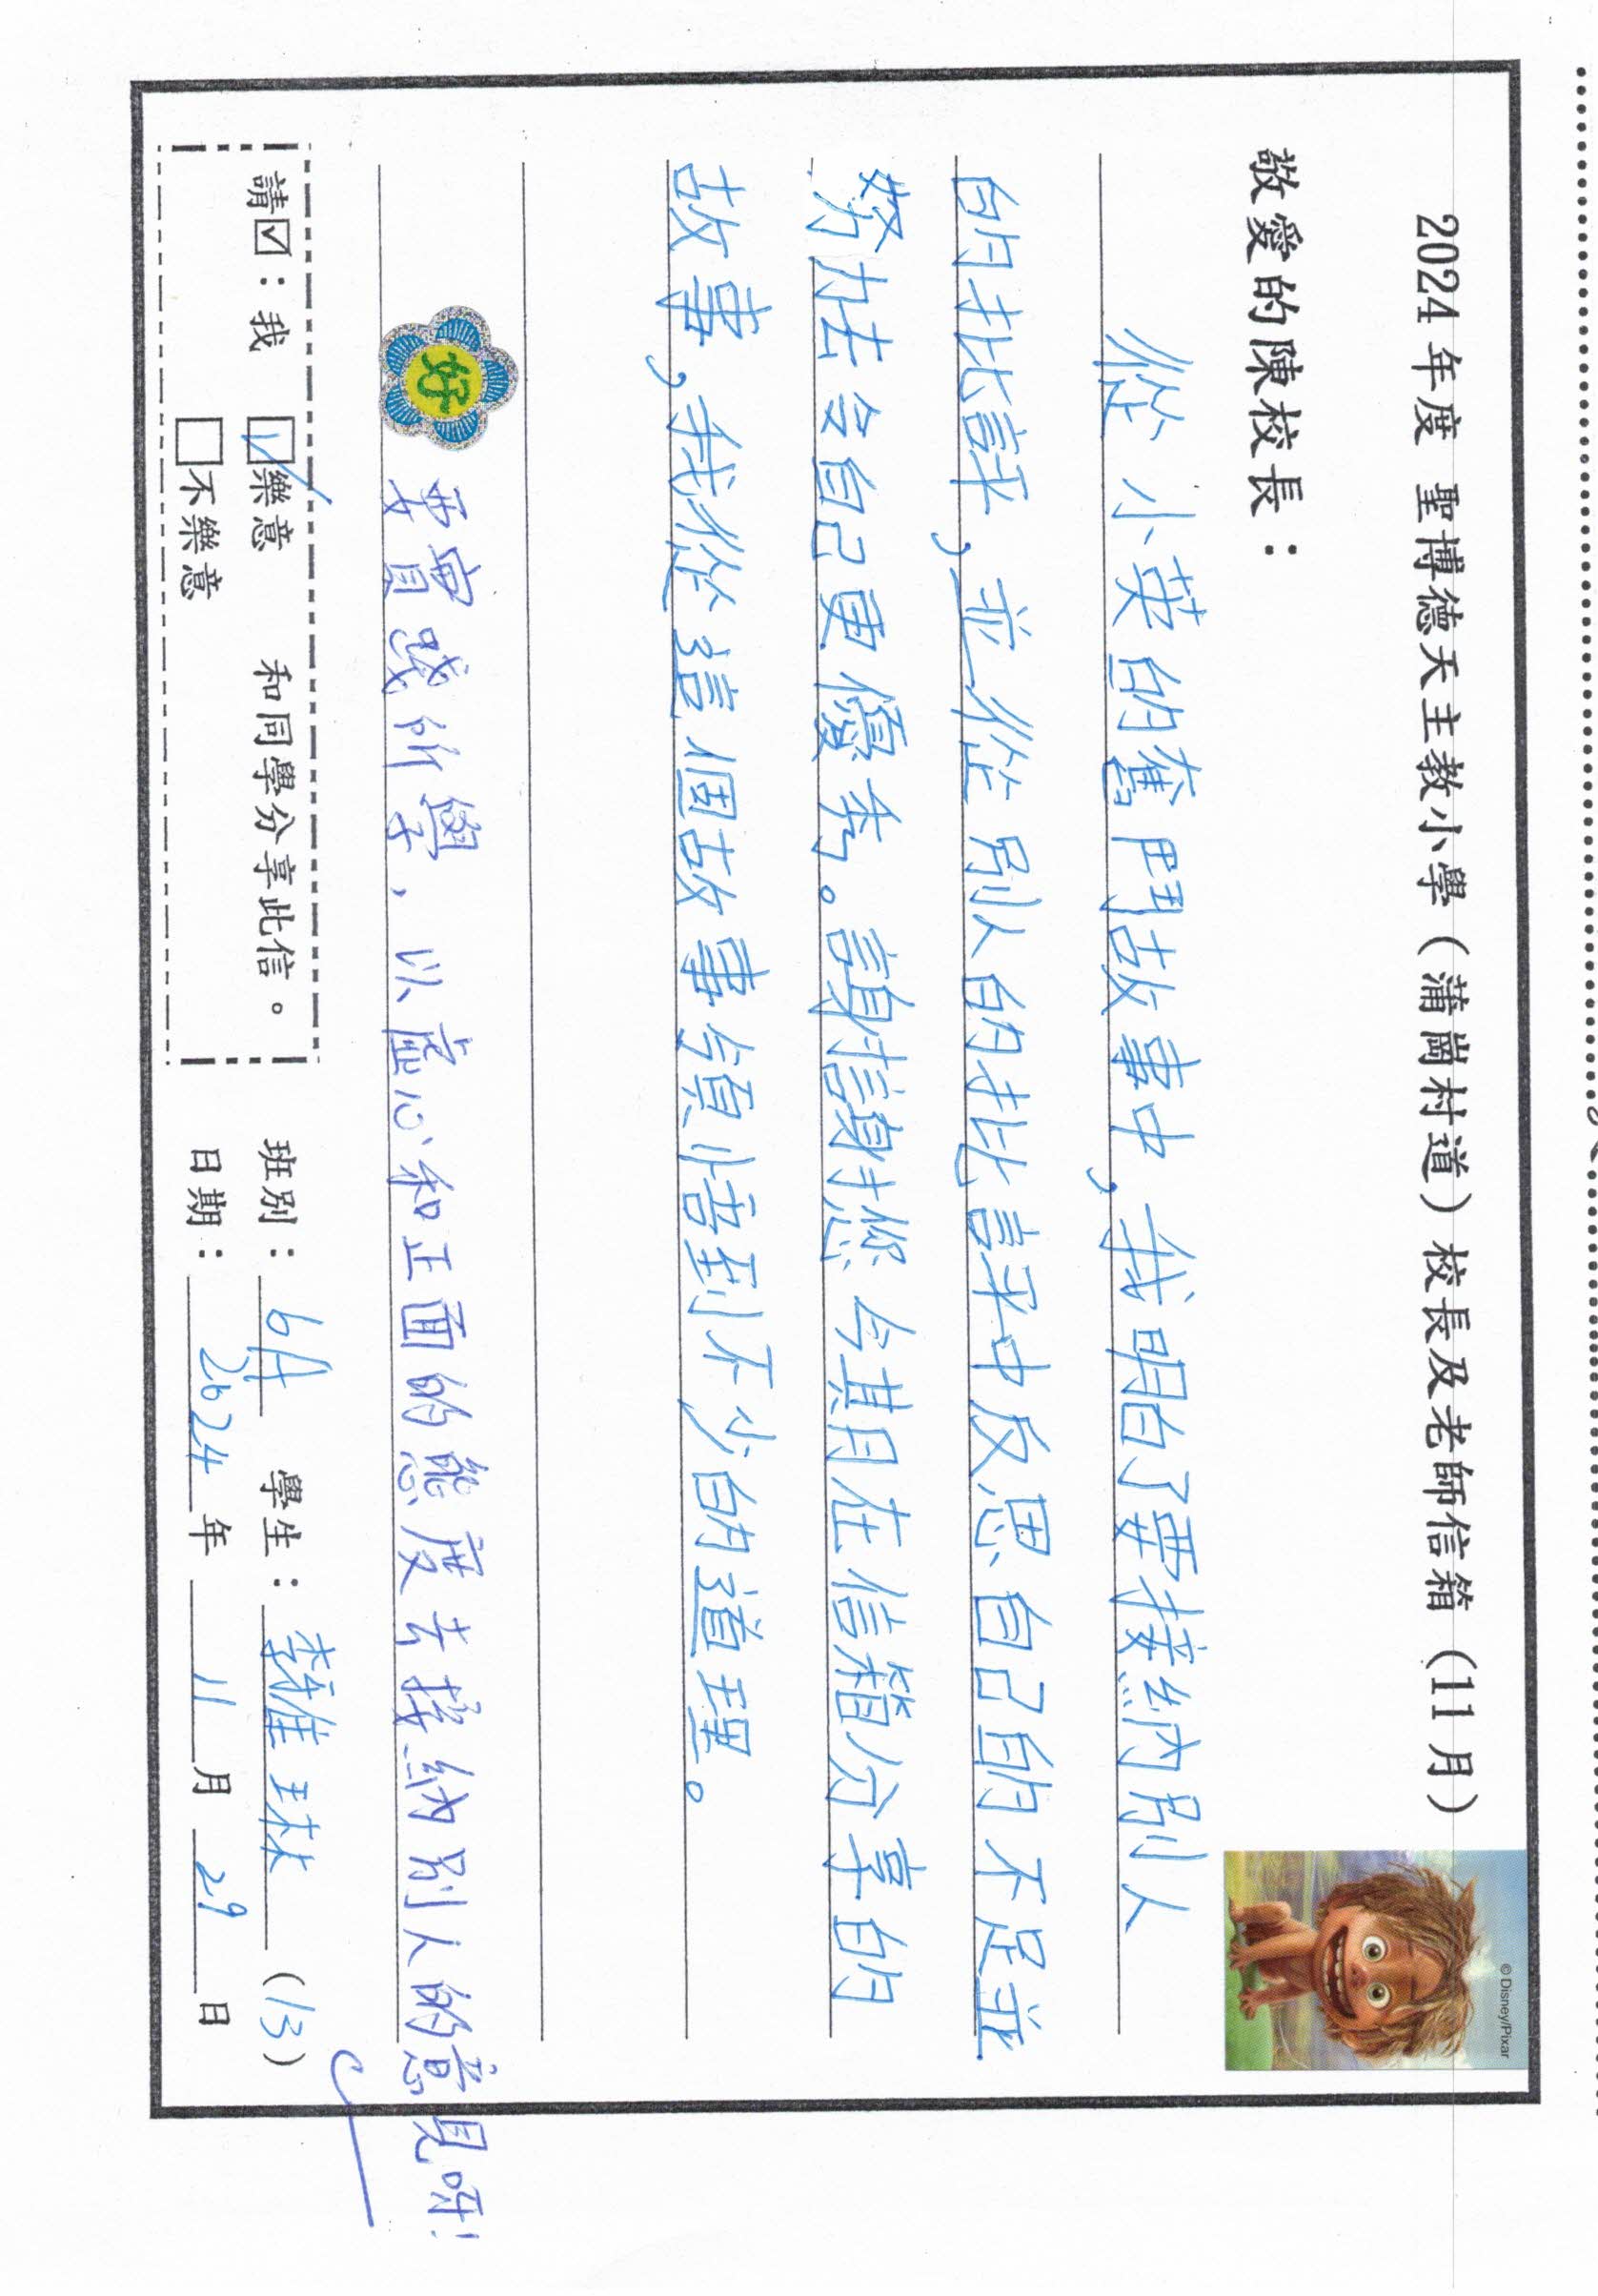 2024 年度 聖博德天主教小學（蒲崗村道）校長及老師信箱（11 月）
© Disney/Pixar
敬愛的陳校長：
從小英的奮鬥故事中，我明白了要接納別人
的批評，並從別人的批評中反思自己的不足並
努力去令自己更優秀。謝謝您今期在信箱分享的
故事，我從這個故事領悟到不少的道理。
好
要實踐所學，以虛心和正面的態度去接納別人的意見呀！
請☑：我 ☑樂意 和同學分享此信。
□不樂意
班別：6A 學生：李雅琳 (13)
日期：2024 年 11 月 29 日